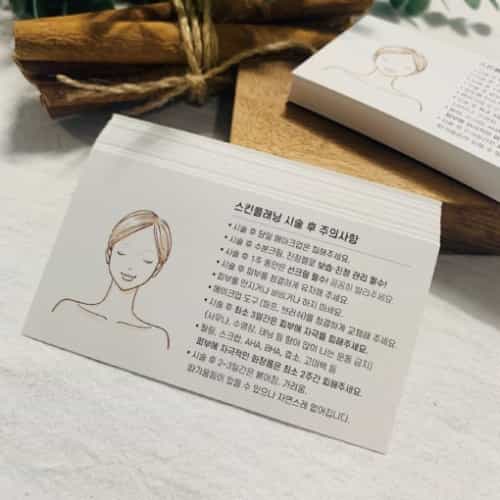 스킨플래닝 시술 후 주의사항
• 시술 후 당일 메이크업은 피해주세요.
• 시술 후 수분크림, 진정젤로 보습·진정 관리 필수!
• 시술 후 1주 동안은 선크림 필수! 꼼꼼히 발라주세요.
• 시술 후 피부를 청결하게 유지해 주세요.
• 피부를 만지거나 비비거나 하지 마세요.
• 메이크업 도구 (퍼프, 브러쉬)을 청결하게 교체해 주세요.
• 시술 후 최소 3일간은 피부에 자극을 피해주세요.
(사우나, 수영장, 태닝 등 땀이 많이 나는 운동 금지)
• 필링, 스크럽, AHA, BHA, 효소, 고마쥐 등
피부에 자극적인 화장품은 최소 2주간 피해주세요.
• 시술 후 2~3일간은 붉어짐, 가려움,
좁쌀이 있을 수 있으나 자연스레 없어집니다.